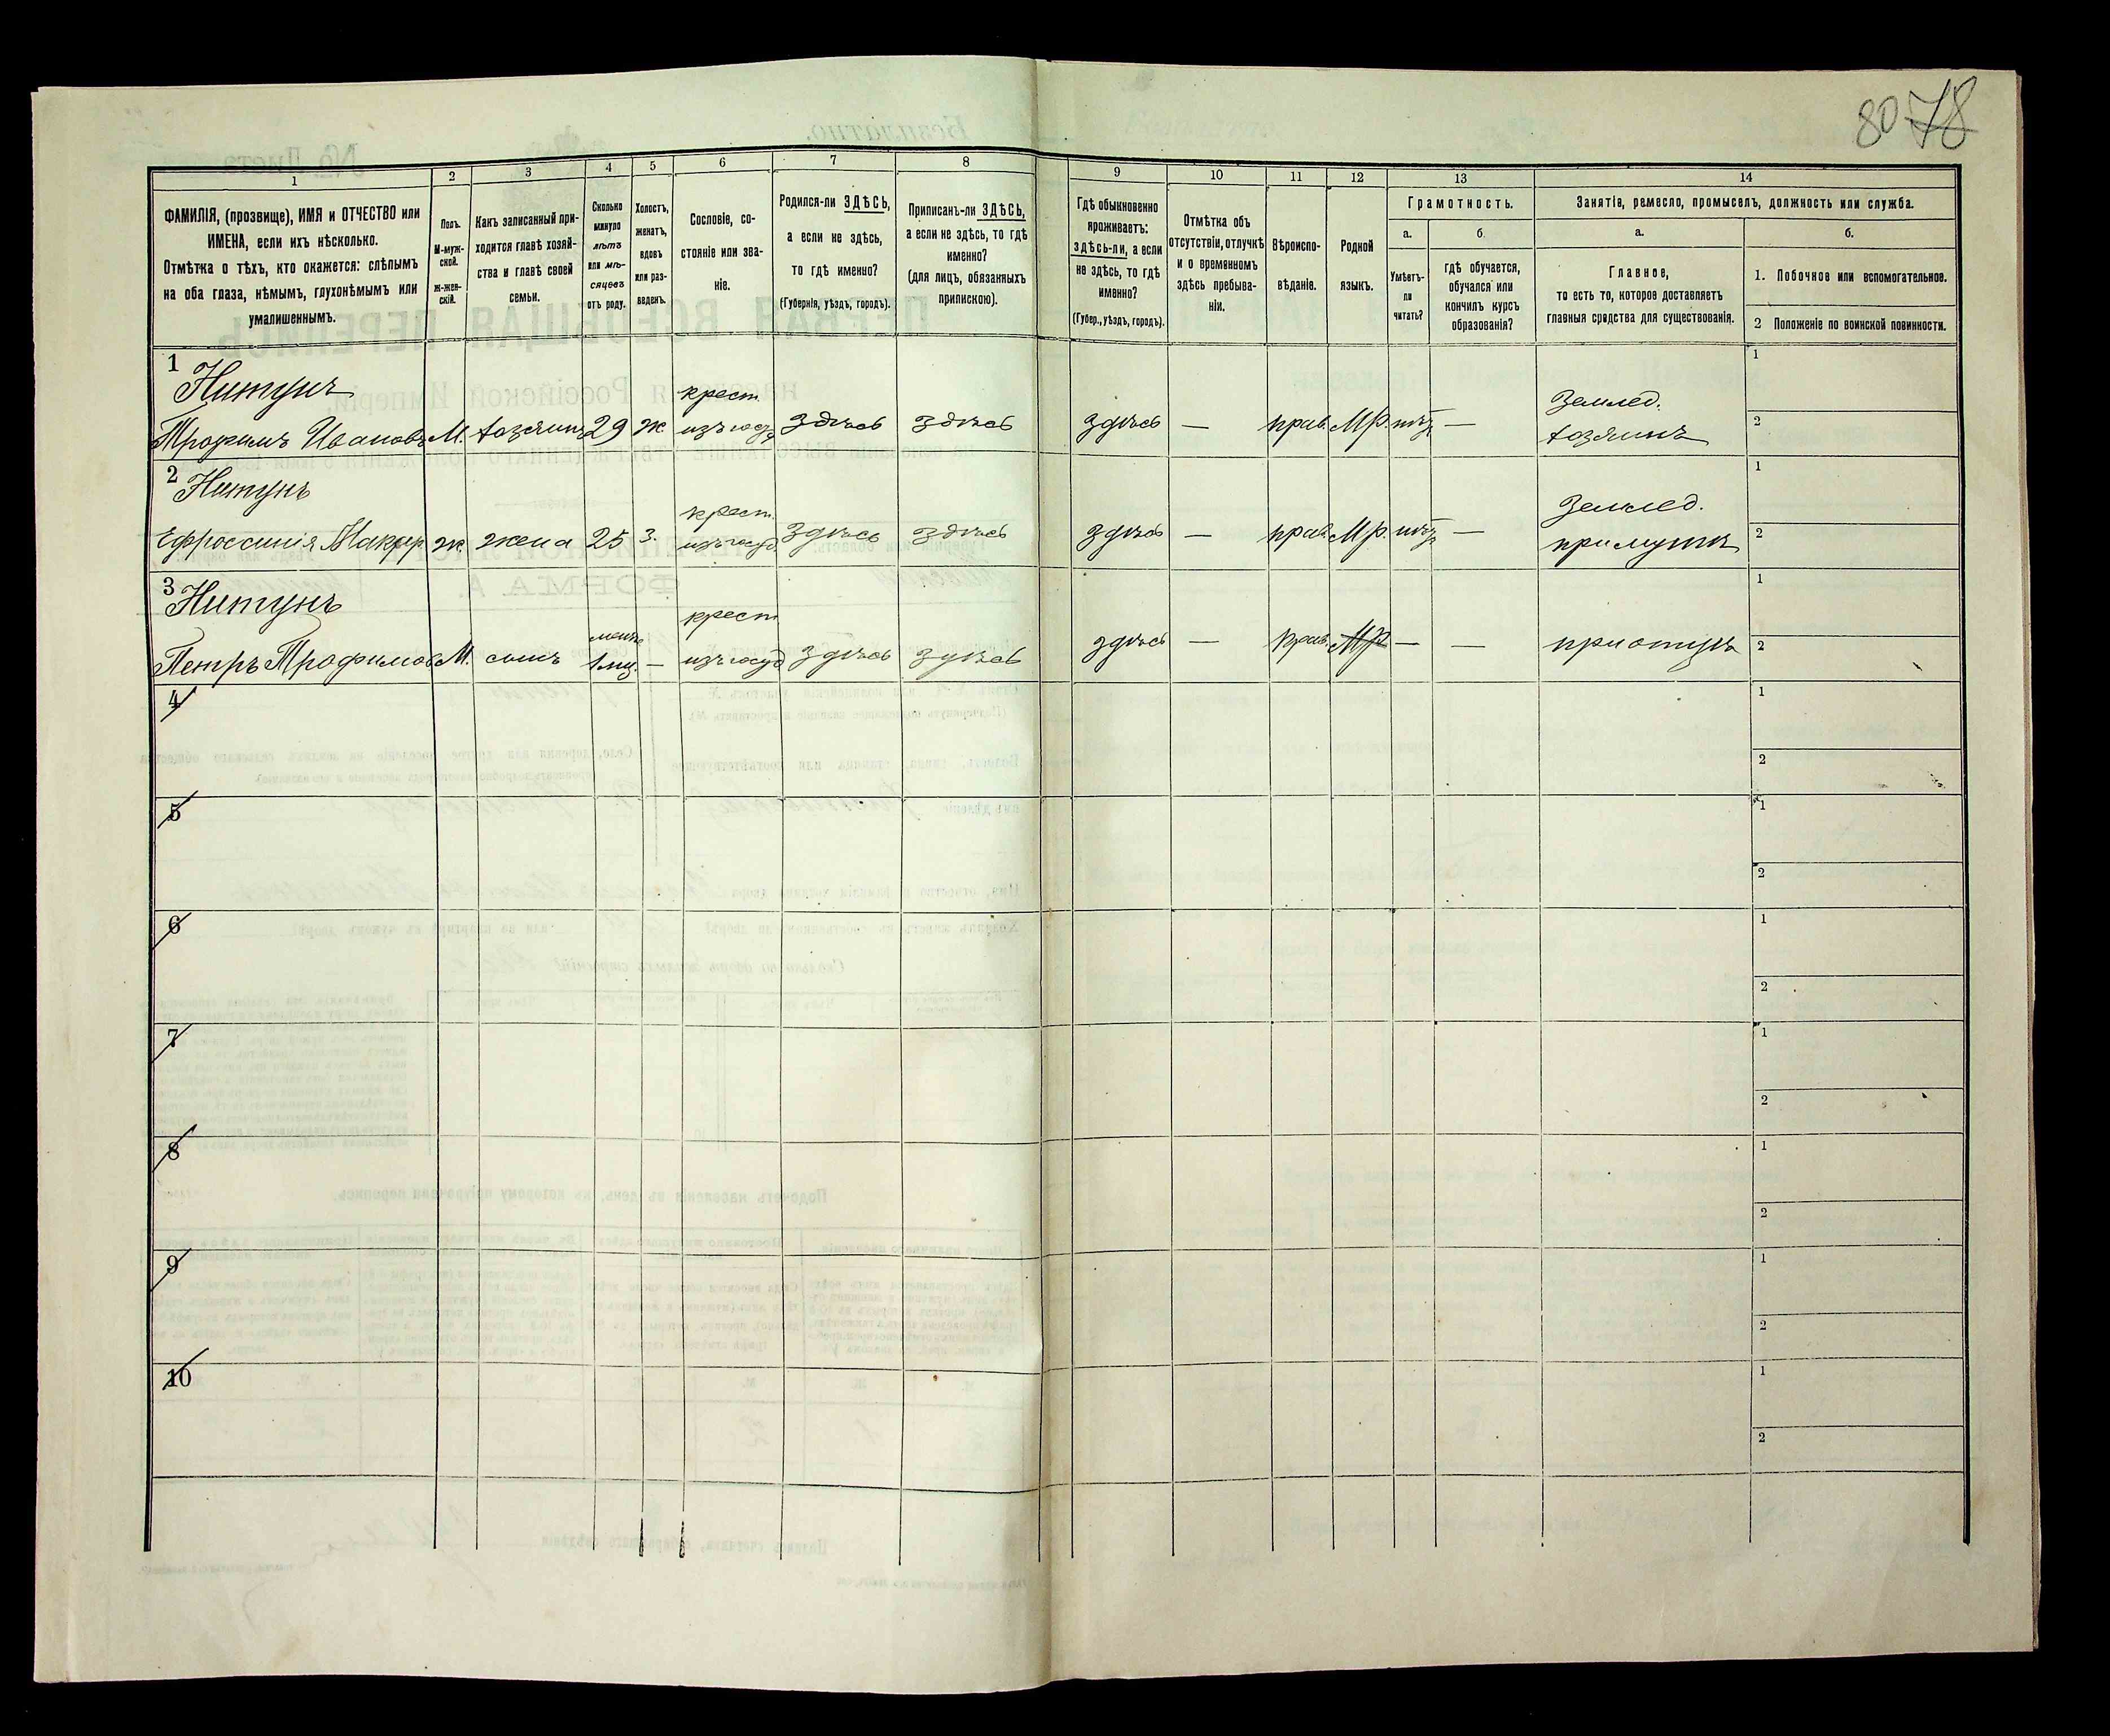 80 78
1
2
3
4
5
6
7
8
9
10
11
12
13
14
ФАМИЛІЯ, (прозвище), ИМЯ и ОТЧЕСТВО или
ИМЕНА, если ихъ нѣсколько.
Отмѣтка о тѣхъ, кто окажется: слѣпымъ
на оба глаза, нѣмымъ, глухонѣмымъ или
умалишеннымъ.
Полъ.
М-муж-
ской.
ж-жен-
скій.
Какъ записанный при-
ходится главѣ хозяй-
ства и главѣ своей
семьи.
Сколько
минуло
лѣтъ
или мѣ-
сяцевъ
отъ роду.
Холостъ,
женатъ,
вдовъ
или раз-
веденъ.
Сословіе, со-
стояніе или зва-
ніе.
Родился-ли ЗДѢСЬ,
а если не здѣсь,
то гдѣ именно?
(Губернія, уѣздъ, городъ).
Приписанъ-ли ЗДѢСЬ,
а если не здѣсь, то гдѣ
именно?
(для лицъ, обязанныхъ
припискою).
Гдѣ обыкновенно
проживаетъ:
здѣсь-ли, а если
не здѣсь, то гдѣ
именно?
(Губер., уѣздъ, городъ).
Отмѣтка объ
отсутствіи, отлучкѣ
и о временномъ
здѣсь пребыва-
ніи.
Вѣроиспо-
вѣданіе.
Родной
языкъ.
Грамотность.
а.
Умѣетъ-
ли
читать?
б.
гдѣ обучается,
обучался или
кончилъ курсъ
образованія?
Занятіе, ремесло, промыселъ, должность или служба.
а.
Главное,
то есть то, которое доставляетъ
главныя средства для существованія.
б.
1. Побочное или вспомогательное.
2 Положеніе по воинской повинности.
1 Нитунъ крест. Землед. 1
Трофимъ Ивановъ М. хозяинъ 29 ж изъ госуд здѣсь здѣсь здѣсь — прав. МР. нѣтъ — хозяинъ 2
2 Нитунъ крест. Землед. 1
Ефросинія Макар ж. жена 25 з. изъ госуд. здѣсь здѣсь здѣсь — прав. Мр. нѣтъ — 2
3 Нитунъ менѣе крест 1
Петръ Трофимов М. сынъ 1 мц. — изъ госуд здѣсь здѣсь здѣсь — прав. Мр — — при отцѣ 2
4 1
2
5 1
2
6 1
2
7 1
2
8 1
2
9 1
2
10 1
2